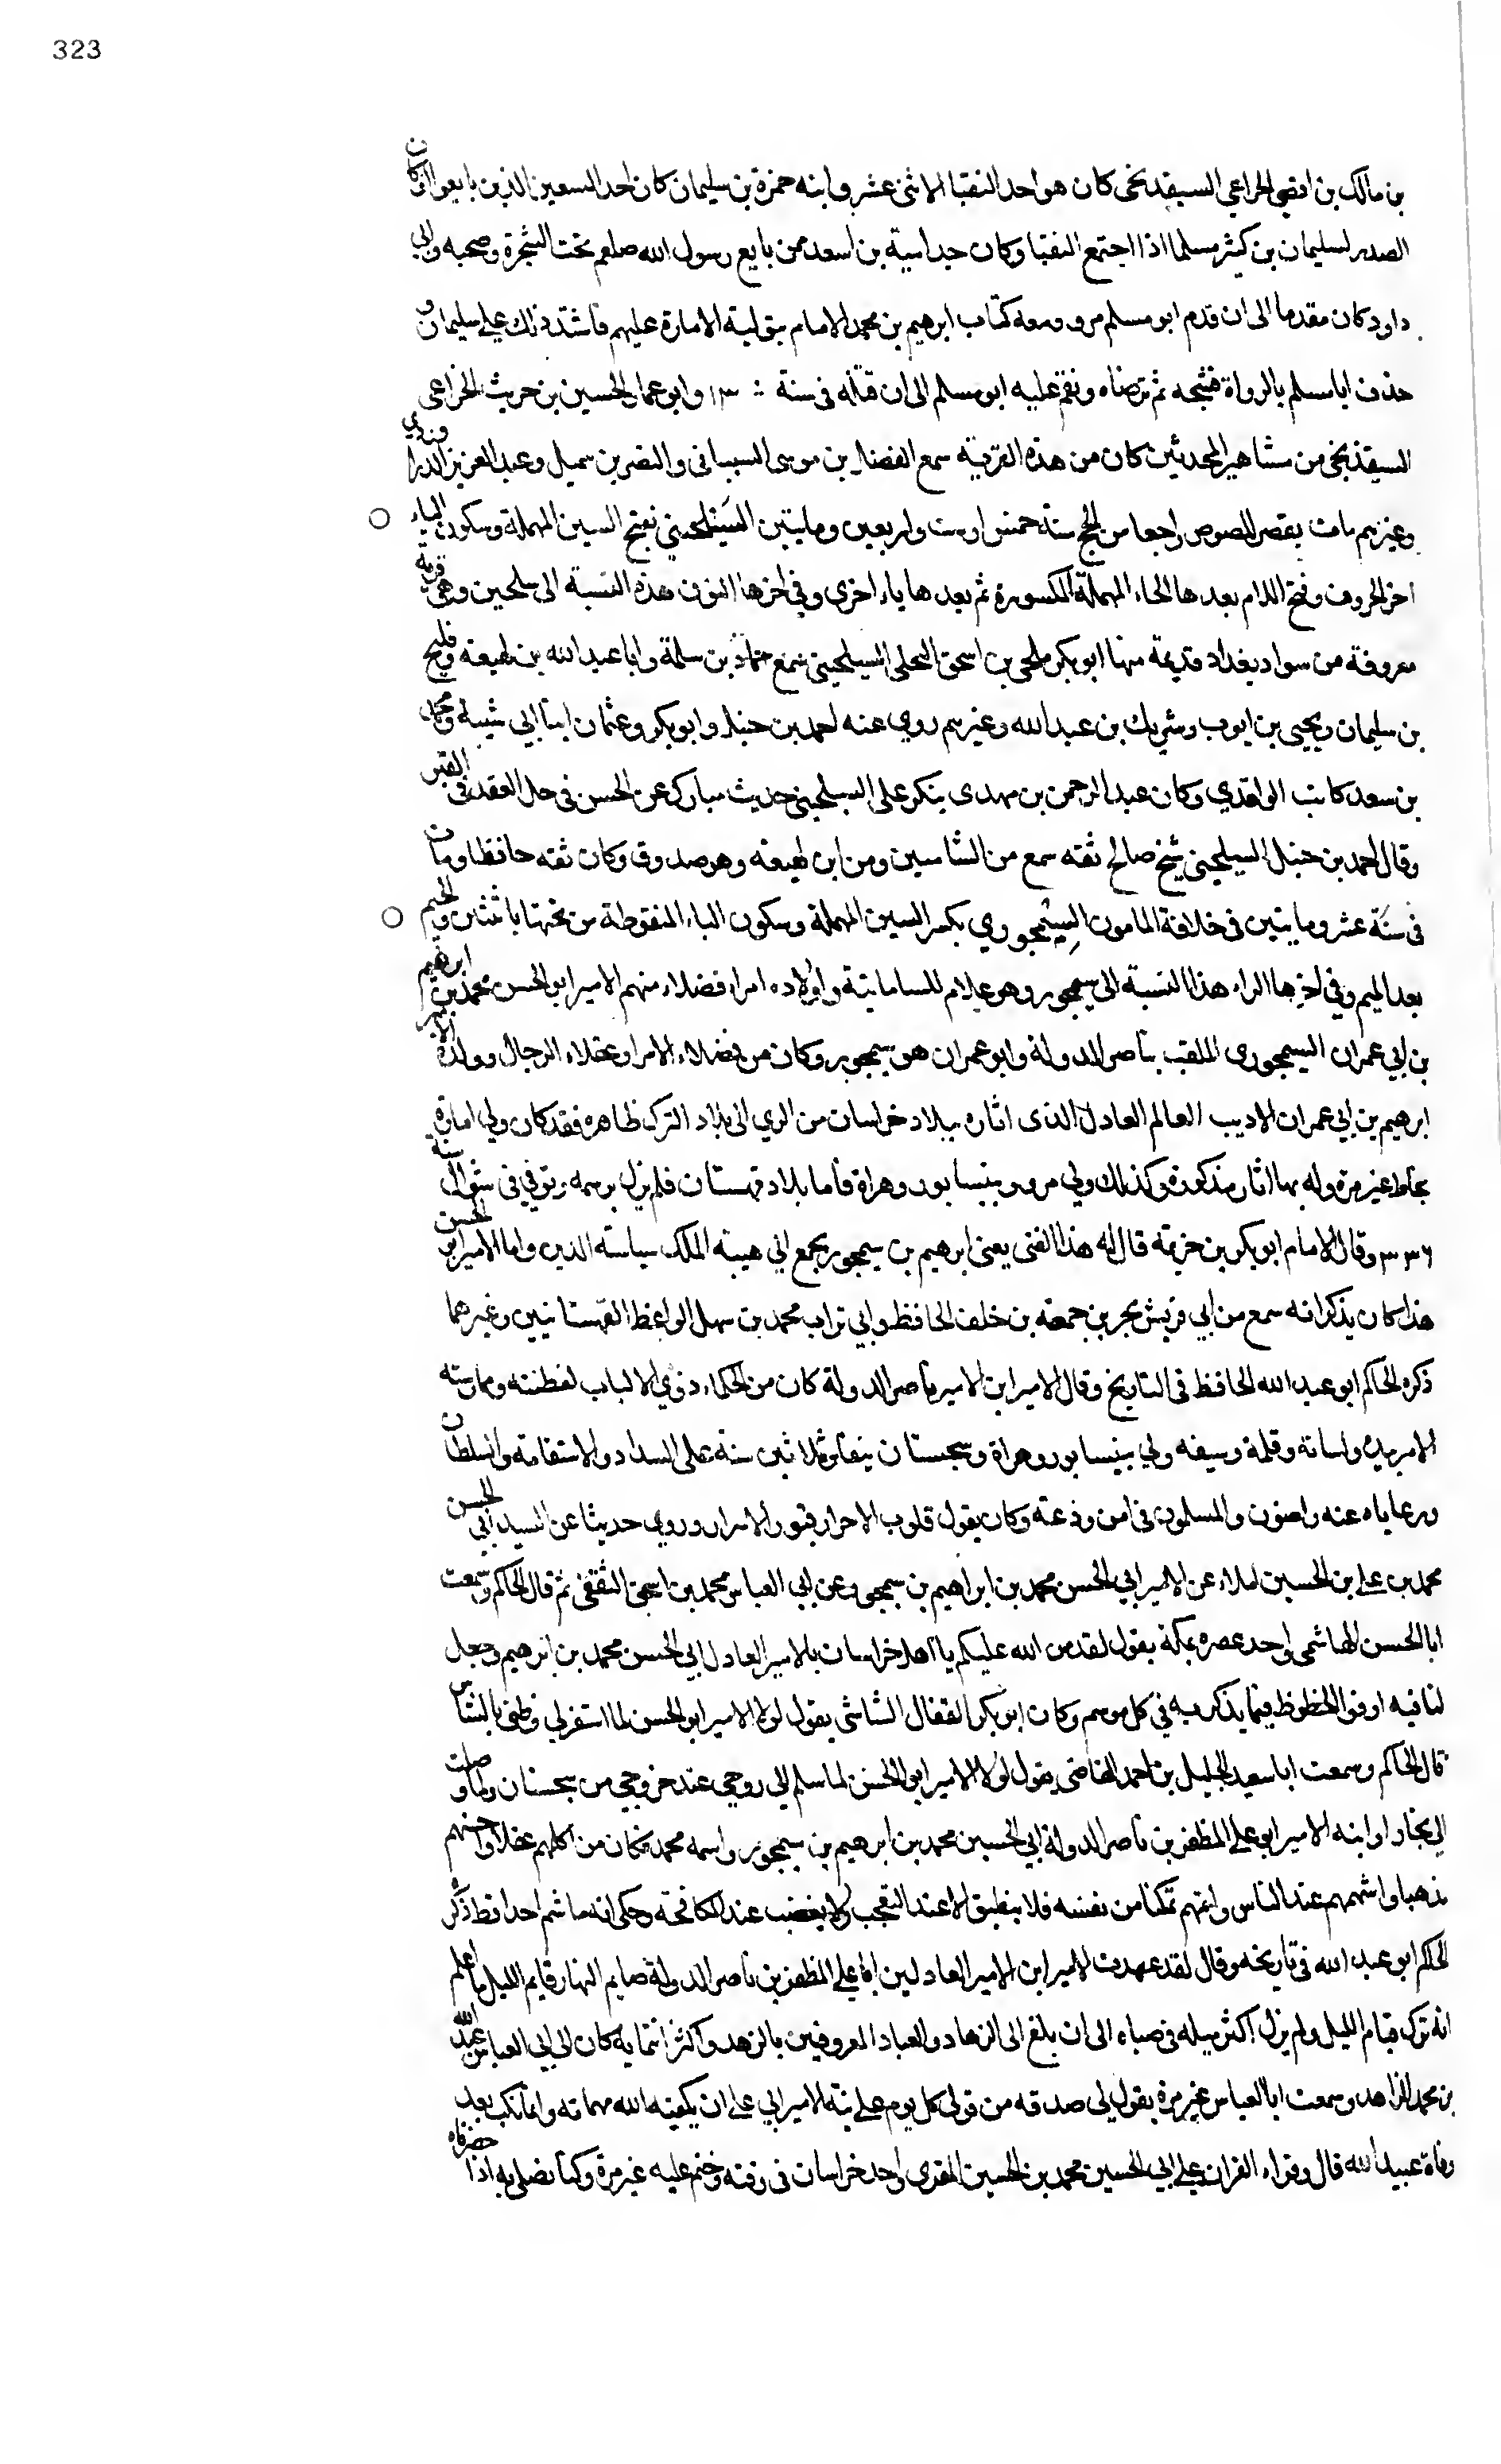 323
بن مالك بن افصى الخزاعي السيقذنجى كان هو احد النقبا الاثنى عشر وابنه حمزة بن سليمان كان احد السبعين الذين بايعوا وكان
الصدر لسليمان بن كثير مسلما اذا اجتمع النقبا وكان جد اسية بن اسعد ممن بايع رسول الله صلعم تحت الشجرة وصحبه والى
داود كان مقدما الى ان قدم ابو مسلم مرو ومعه كتاب ابرهيم بن محمد الامام بتولية الامارة عليهم فاشتد ذلك على سليمان و
حذف ابا مسلم بالدواة فشجه ثم ترضاه ونقم عليه ابو مسلم الى ان قتله فى سنة ١٣ وابو عمار الحسين بن حريث الخزاعى
السيقذنجى من مشاهير المحدثين كان من هذه القرية سمع الفضل بن موسى السينانى والنضر بن شميل وعبد العزيز الدراوردي
وغيرهم مات بقصر اللصوص راجعا من الحج سنة خمس او ست واربعين ومايتين السَيلحيني بفتح السين المهملة وسكون الياء
اخر الحروف وفتح اللام بعدها الحاء المهملة المكسورة ثم بعدها ياء اخرى وفى اخرها النون هذه النسبة الى سيلحين وهى قرية
معروفة من سواد بغداد قديمة منها ابو بكر يحيى بن اسحق البجلى السيلحينى سمع حماد بن سلمة وابا عبد الله بن لهيعة وفليح
بن سليمان ويحيى بن ايوب وشريك بن عبد الله وغيرهم روى عنه احمد بن حنبل وابو بكر وعثمان ابنا ابي شيبة ومحمد
بن سعد كاتب الواقدي وكان عبد الرحمن بن مهدى ينكر على السيلحينى حديث مبارك عن الحسن فى حل العقد فى القبر
وقال احمد بن حنبل السيلحينى شيخ صالح ثقه سمع من الشاميين ومن ابن لهيعة وهو صدوق وكان ثقه حافظا ومات
فى سنة عشر ومايتين فى خلافة المامون السِيمجوري بكسر السين المهملة وسكون الياء المنقوطة من تحتها باثنتين والجيم
بعد الميم وفى اخرها الراء هذا النسبة الى سيمجور وهو غلام للسامانية واولاده امراء فضلاء منهم الامير ابو الحسن محمد بن ابرهيم
بن ابي عمران السيمجورى الملقب بناصر الدولة وابو عمران هو سيمجور وكان من فضلاء الامرا وعقلاء الرجال ووالده الامير
ابرهيم بن ابي عمران الاديب العالم العادل الذى اثاره ببلاد خراسان من الري الى بلاد الترك ظاهره فقد كان ولى امارة
بخارا غير مرة وله بها اثار مذكورة وكذلك ولى مرو ونيسابور وهراة فاما بلاد قهستان فلم يزل برسمه وتوفي فى شوال سنة
٣٣٦ وقال الامام ابو بكر بن خزيمة قال له هذا الفتى يعنى ابرهيم بن سيمجور يجمع الى هيبة الملك سياسة الدين واما الامير ابو الحسن
هذا كان يذكر انه سمع من ابي قريش بن جمعة بن خلف الحافظ وابي تراب محمد بن سهل الواعظ القهستانيين وغيرهما
ذكره الحاكم ابو عبد الله الحافظ فى التاريخ وقال الامير ابن الامير ناصر الدولة كان من الحكماء ذوي الالباب لفطنته وممارسته
الامر بيده ولسانه وقلمه وسيفه ولي نيسابور وهراة وسجستان نيفا وثلاثين سنة على السداد والاستقامة والسلطان
ورعاياه عنه راضون والمسلمون فى امن ودعة وكان يقول قلوب الاحرار قبور الاسرار وروى حديثا عن السيد ابي الحسن
محمد بن علي بن الحسين املاء عن الامير ابي الحسن محمد بن ابراهيم بن سيمجور وعن ابي العباس محمد بن اسحق الثقفى ثم قال الحاكم وسمعت
ابا الحسن الهاشمى واحد عصره بمكة يقول لقد من الله عليكم يا اهل خراسان بالامير العادل ابي الحسن محمد بن ابرهيم وجعل
لنا فيه اوفر الحظوظ فيما يذكر به في كل موسم وكان ابو بكر القفال الشاشى يقول لولا الامير ابو الحسن لما استقر لي وطنى بالشاش
قال الحاكم وسمعت ابا سعيد الخليل بن احمد القاضى يقول لولا الامير ابو الحسن لما سلم لي روحي عند خروجي من سجستان ولما وصلت
الى بخارا وابنه الامير ابو علي المظفر بن ناصر الدولة ابي الحسين محمد بن ابرهيم بن سيمجور واسمه محمد فكان من اكملهم عقلا واحسنهم
مذهبا واشهمهم عند الناس واتمهم تمكنا من نفسه فلا ينطبق الا عند التعجب ولا يغضب عند المكافحة وحكى انه ما شتم احدا قط ذكر
الحاكم ابو عبد الله فى تاريخه وقال لقد عهدت الامير ابن الامير العادلين ابا علي المظفر بن ناصر الدولة صايم النهار قايم الليل ما اعلم
انه ترك قيام الليل ولم يزل اكثر ميله فى صباه الى ان بلغ الى الزهاد والعباد المعروفين بالزهد واكثر انتمايه كان الى ابي العباس عبد الله
بن محمد الزاهد وسمعت ابا العباس غير مرة يقول لي صدقه من قولى كل يوم على نية الامير ابي على ان يكفيه الله مهماته وانما نكب بعد
وفاة عبيد الله قال وقراء القران على ابي الحسين محمد بن الحسين المقرى واحد خراسان فى وقته وختم عليه غير مرة وكنا نصلى به اذا حضرناه